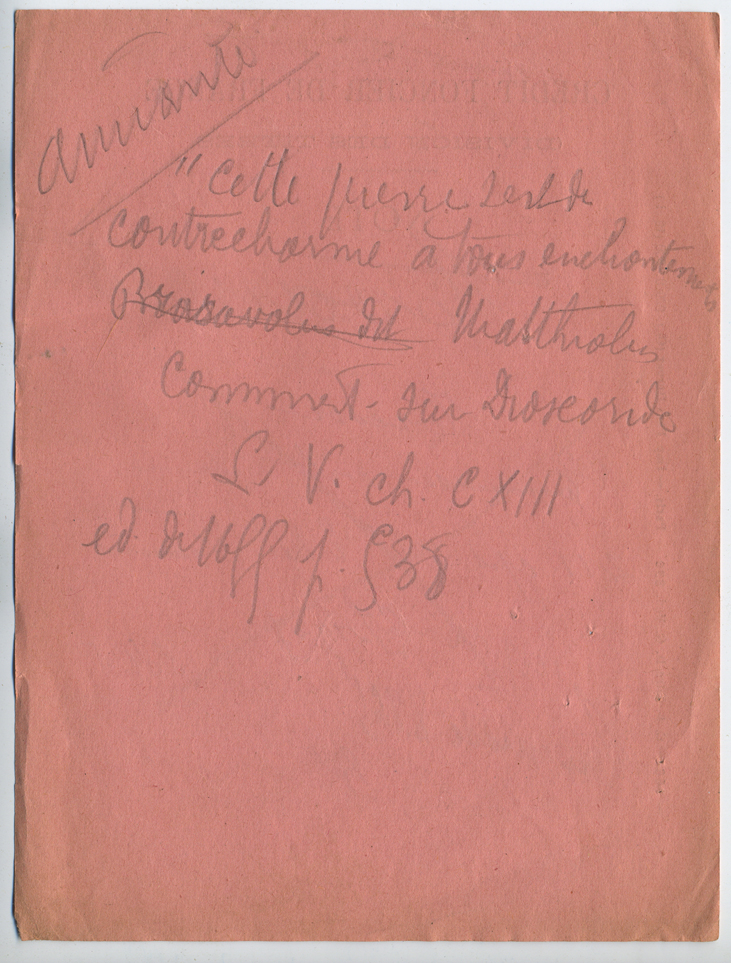 amiante
"Cette pierre sert de
contrecharme à tous enchantements
Brasavolus dit Matthiolus
Comment. sur Dioscoride
L. V. ch. CXIII
ed. de p. 538